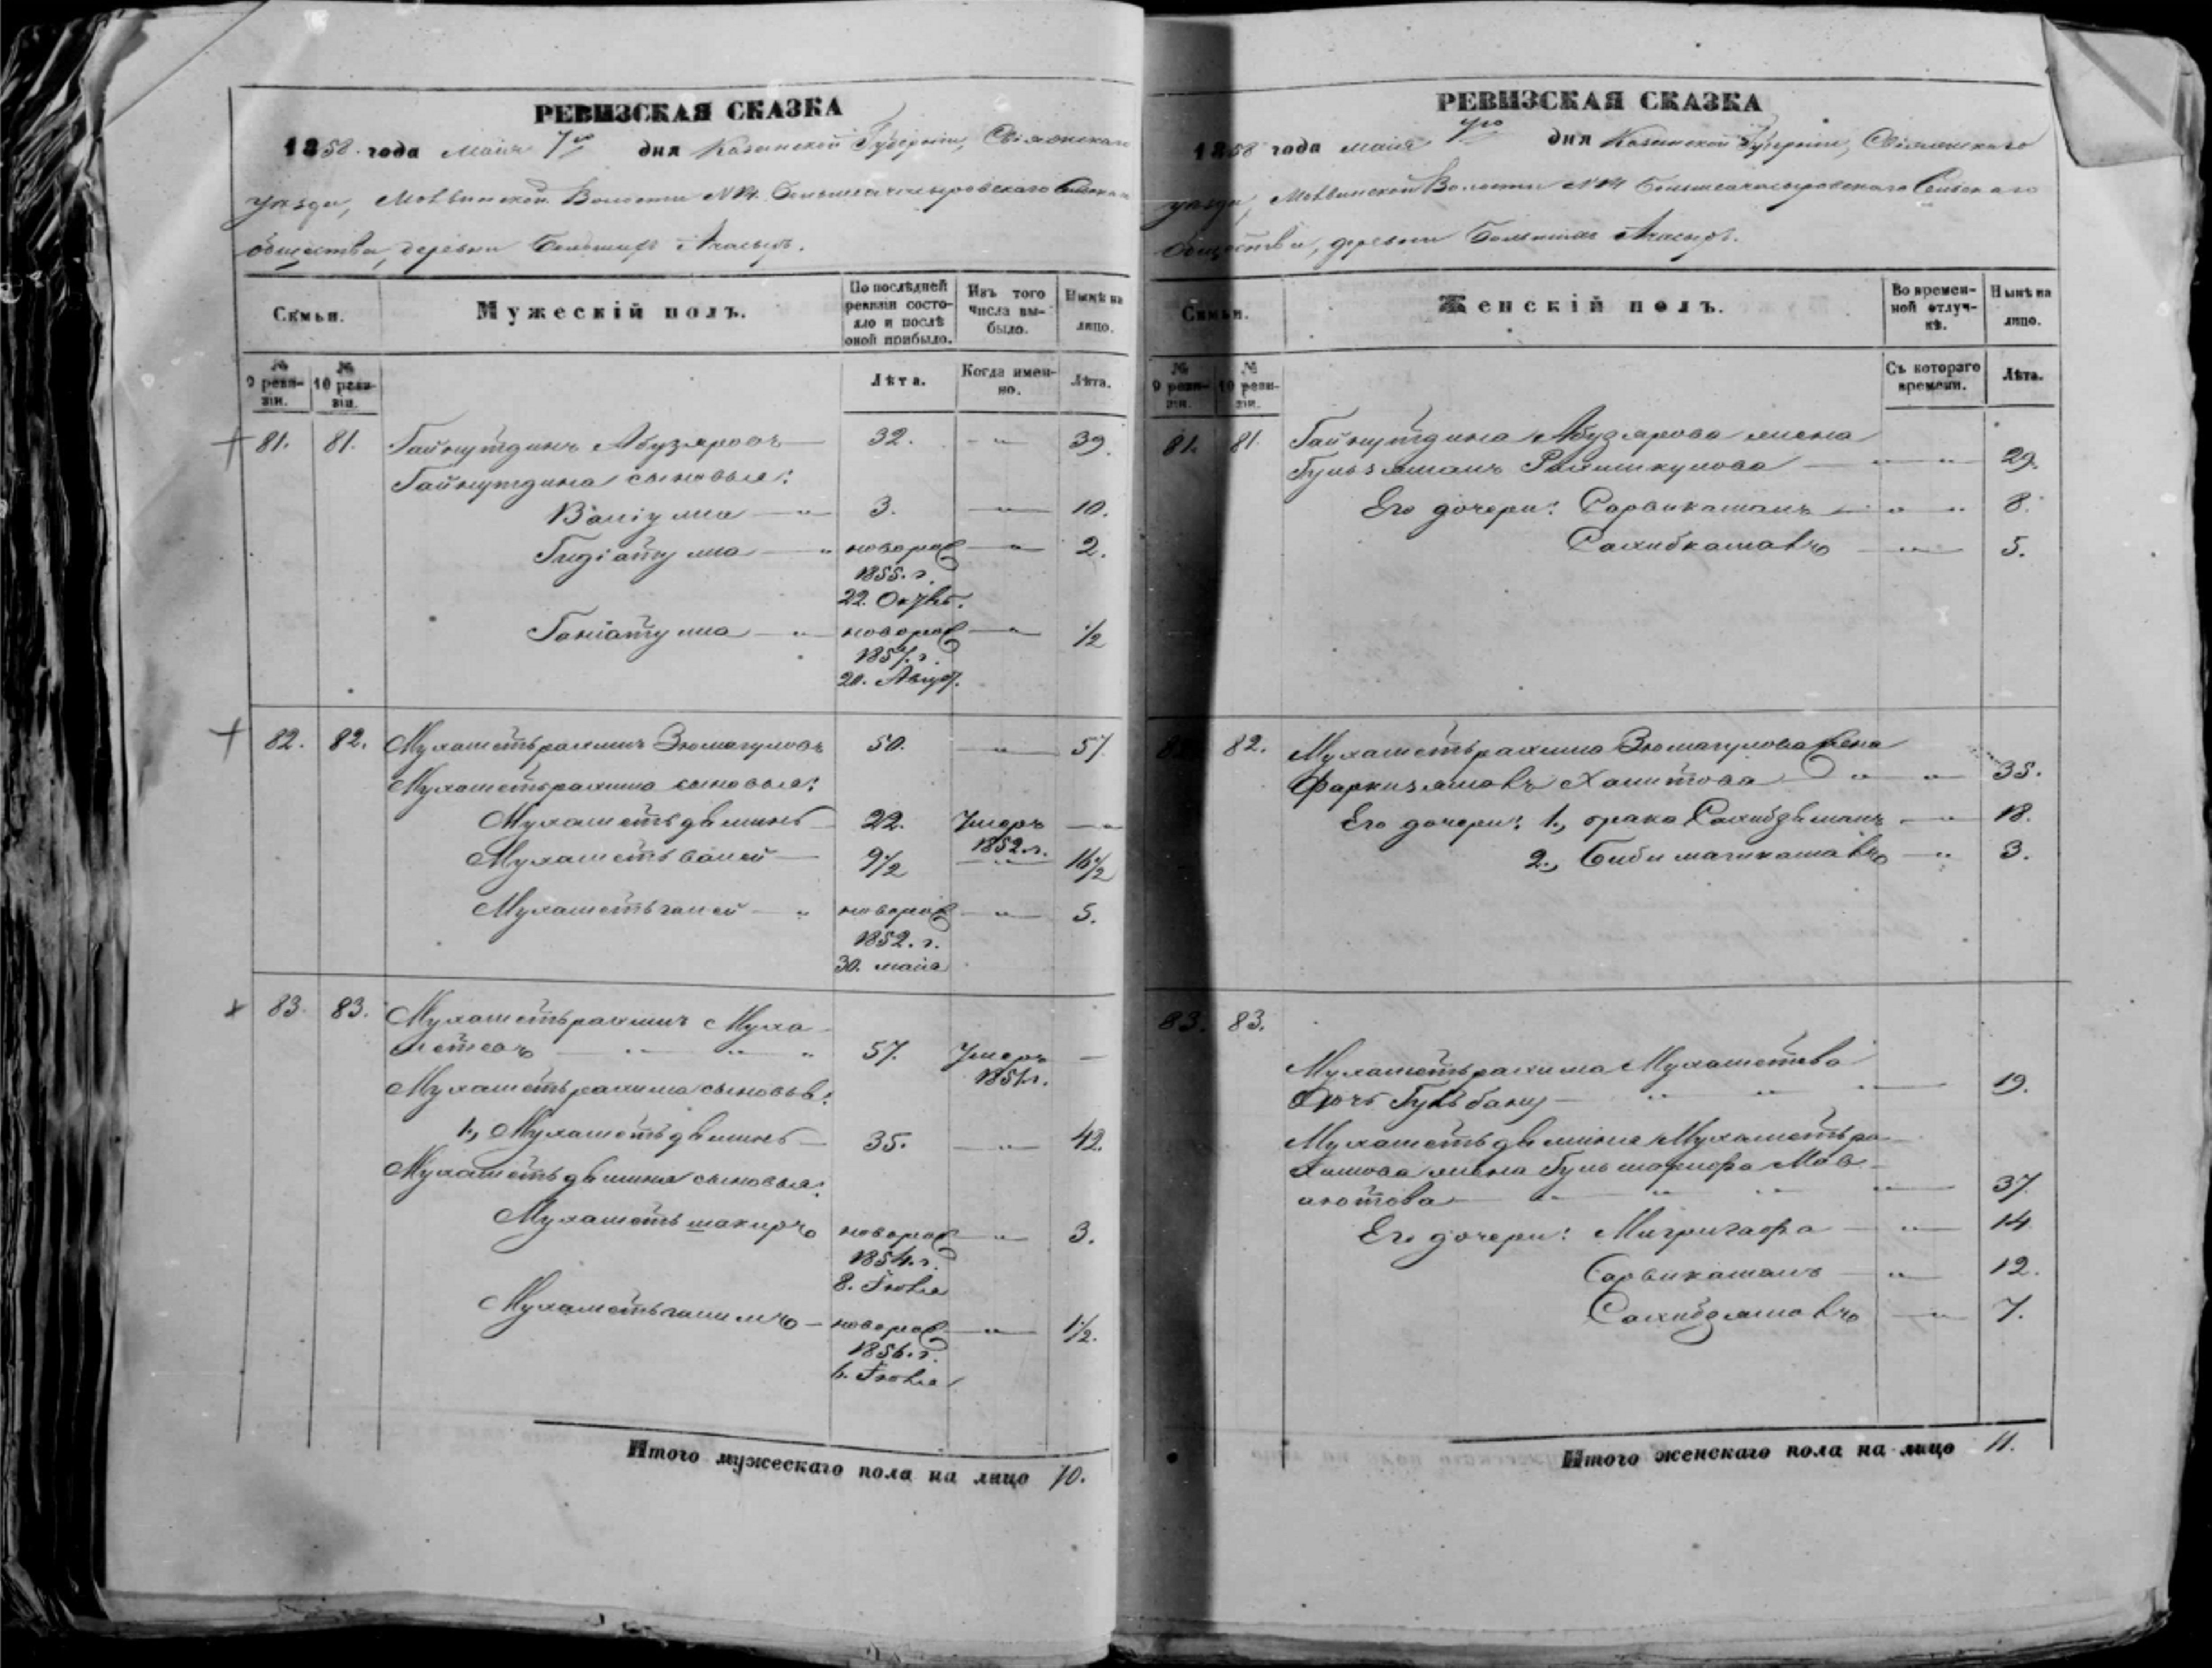 РЕВИЗСКАЯ СКАЗКА
1858 года Маія 7го дня Казанской Губерніи, Свіяжскаго
уѣзда, Волости № 14 Сельскаго
общества, деревни Большихъ Ачасыръ.
Семьи.
Мужескій полъ.
По послѣдней ревизіи состояло и послѣ оной прибыло.
Изъ того числа выбыло.
Нынѣ на лицо.
№ 9 ревизіи.
№ 10 ревизіи.
Лѣта.
Когда именно.
Лѣта.
81. 81. Гайнутдинъ Абузяровъ 32. 39.
Гайнутдина сыновья:
Валіулла 3. 10.
Гидіатулла новорож 2.
1855. г.
22. Октяб.
Ганіатулла новорож 1/2
1857. г.
20. Август.
82. 82. Мухаметьрахимъ Зюмагуловъ 50. 57.
Мухаметьрахима сыновья:
Мухаметьдѣминъ 22. Умеръ
1852. г.
Мухаметьвалей 9 1/2 16 1/2
Мухаметьгалей новорож 5.
1852. г.
30. маія
83. 83. Мухаметьрахимъ Муха-
метевъ 57. Умеръ
1851. г.
Мухаметьрахима сыновья:
1., Мухаметьдѣминъ 35. 42.
Мухаметьдѣмина сыновья:
Мухаметьшакиръ новорож 3.
1854. г.
8. Іюля
новорож 1 1/2.
1856. г.
6. Іюля
Итого мужескаго пола на лицо 10.
РЕВИЗСКАЯ СКАЗКА
1858 года маія 7го дня Казанской Губерніи, Свіяжскаго
уѣзда, Волости № 14 Сельскаго
общества, деревни Большихъ Ачасыръ.
Семьи.
Женскій полъ.
Во временной отлучкѣ.
Нынѣ на лицо.
№ 9 ревизіи.
№ 10 ревизіи.
Съ котораго времени.
Лѣта.
81. 81. Гайнутдина Абузярова жена
Гульзяманъ Рахимкулова 29.
Его дочери: Сарвижамалъ 8.
5.
82. Мухаметьрахима Зюмагулова жена
Халитова 35.
Его дочери: 1., 18.
2., 3.
83. 83.
Мухаметьрахима Мухаметева
дочь Гульбану 19.
Мухаметьдѣмина Мухаметьра-
химова жена
37.
Его дочери: 14
Сарвижамалъ 12.
7.
Итого женскаго пола на лицо 11.